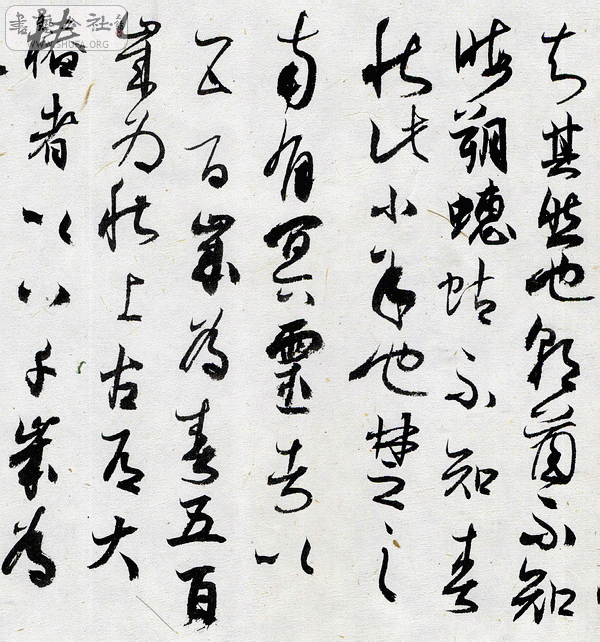 知其然也朝菌不知
晦朔蟪蛄不知春
秋此小年也楚之
南有冥靈者以
五百歲為春五百
歲為秋上古有大
椿者以八千歲為
書藝公社
WWW.SHUFA.ORG